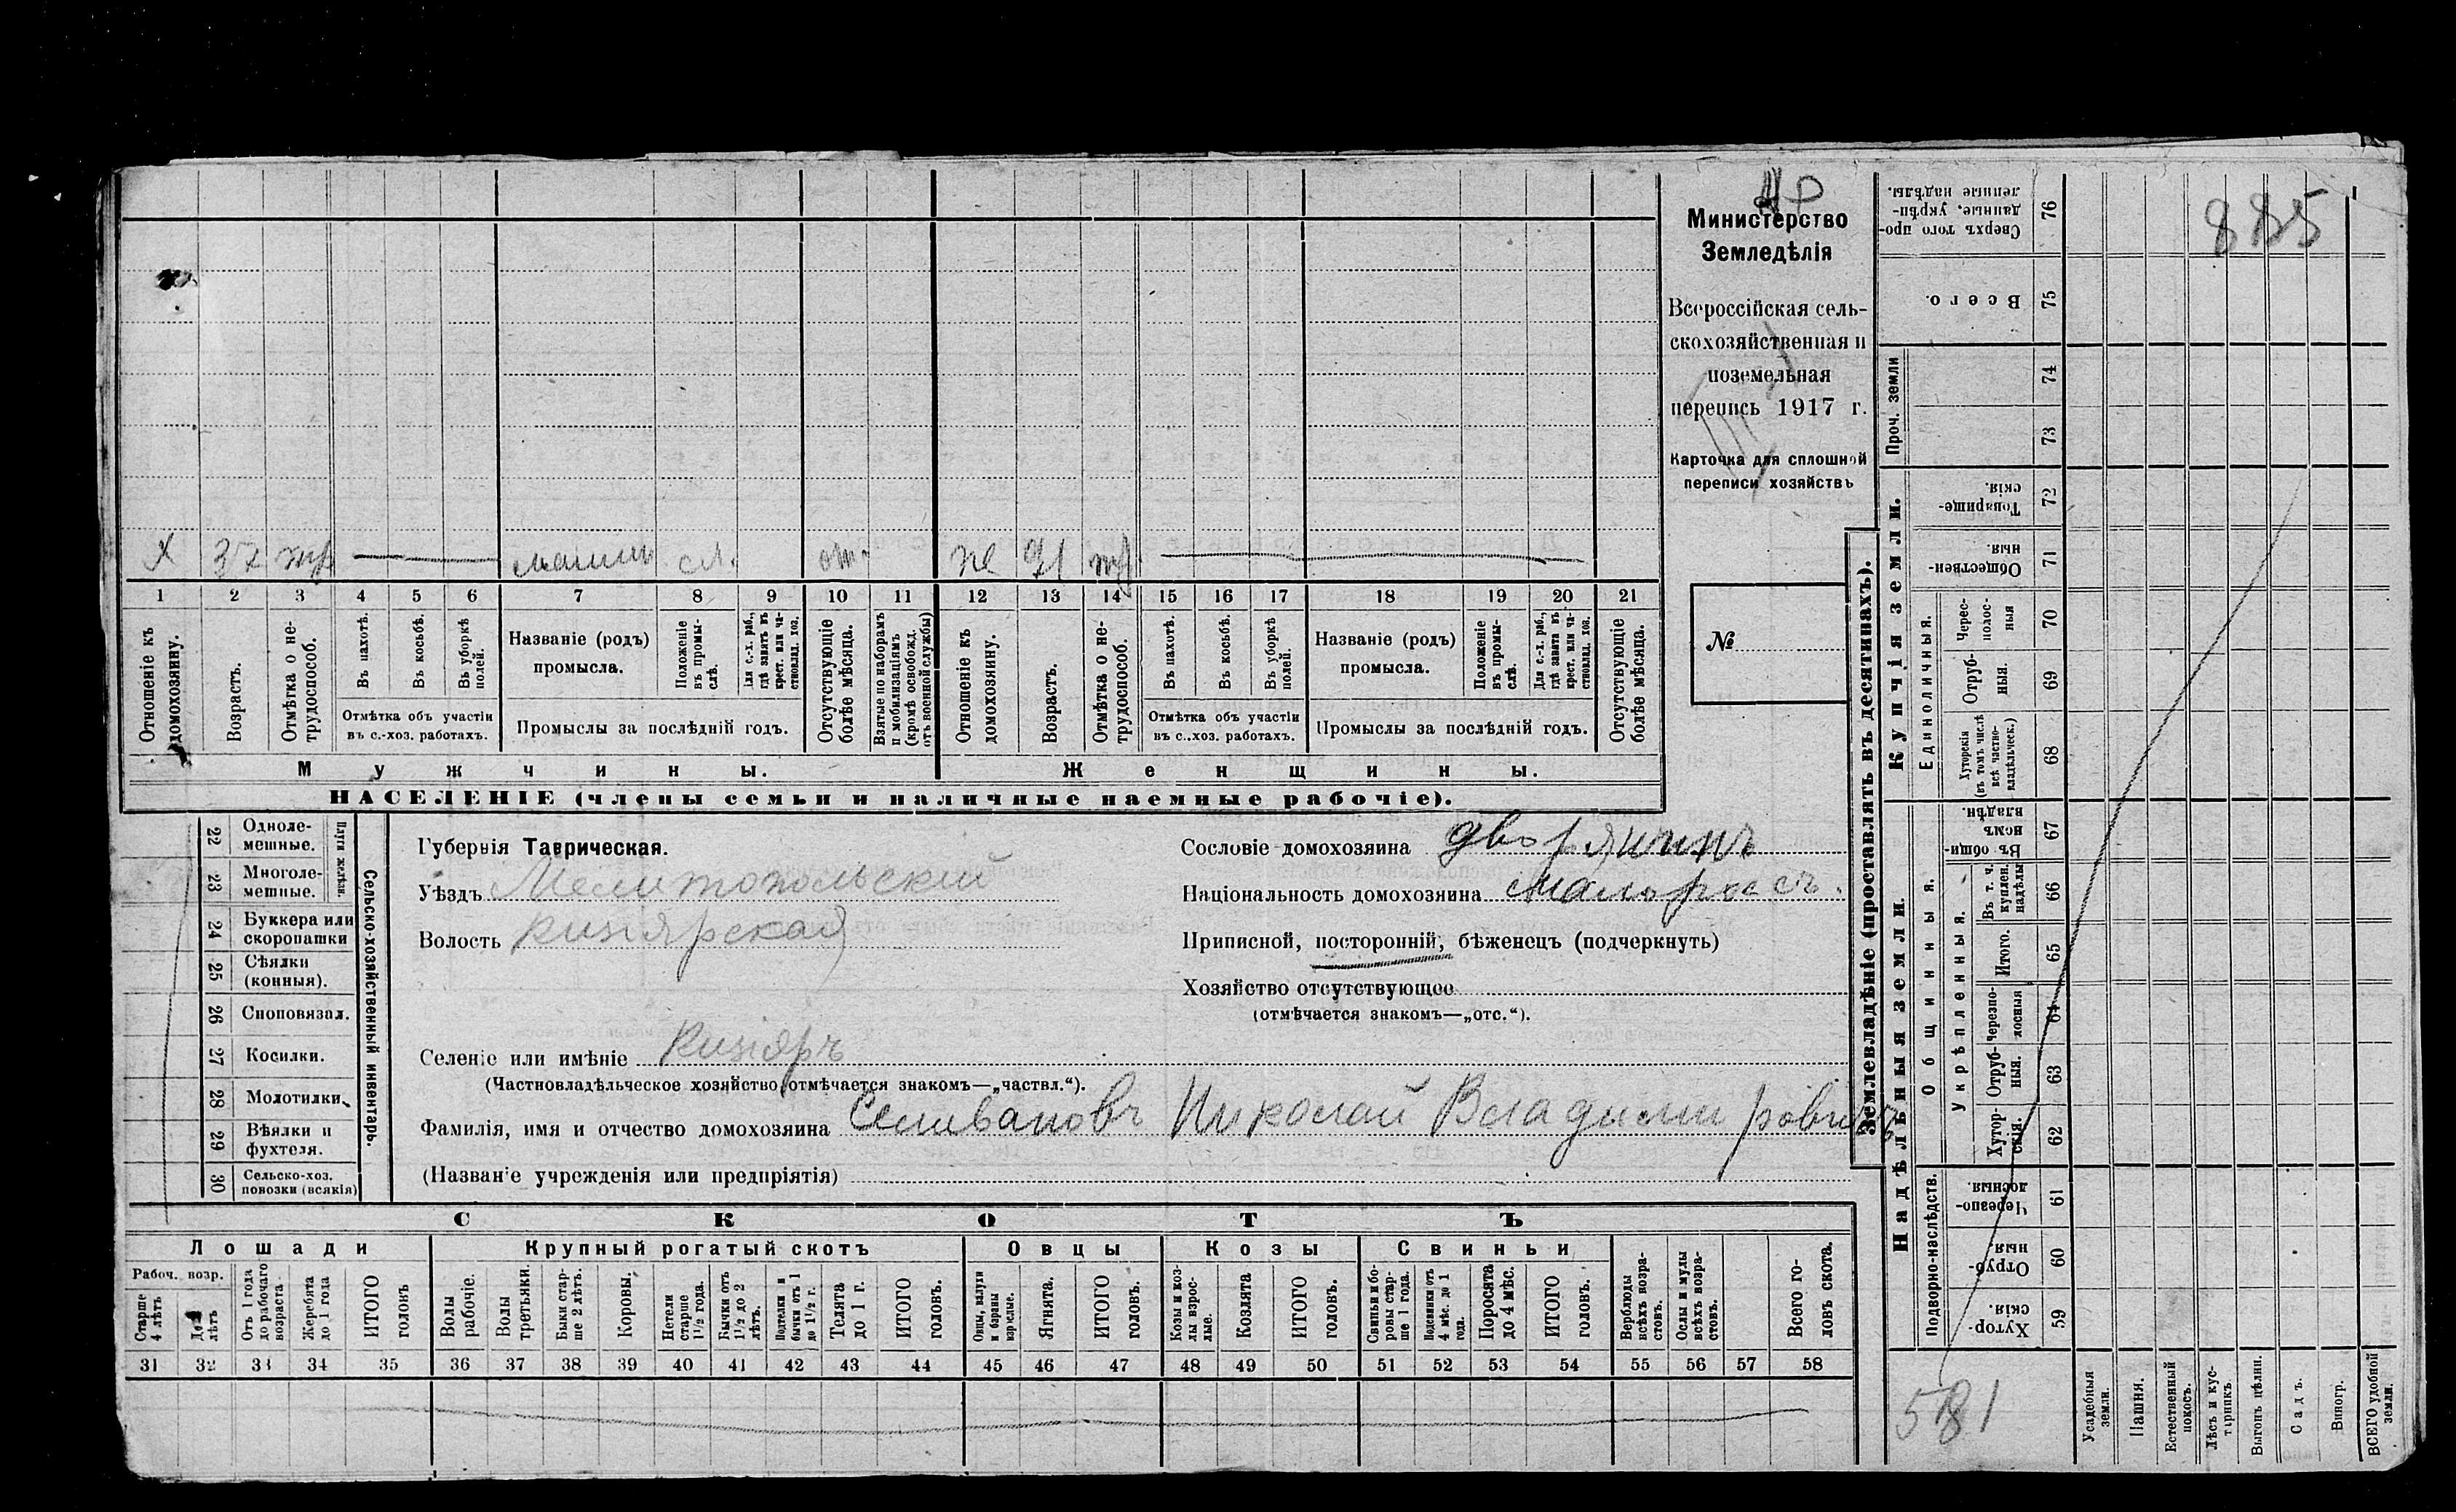 Министерство
Земледѣлія
Всероссійская сель-
скохозяйственная и
поземельная
перепись 1917 г.
Карточка для сплошной
переписи хозяйствъ
№
885
Х 37 тр машин. сл. от. же 21 тр
1 2 3 4 5 6 7 8 9 10 11 12 13 14 15 16 17 18 19 20 21
Отношеніе къ домохозяину.
Возрастъ.
Отмѣтка о не-трудоспособ.
Въ пахотѣ.
Въ косьбѣ.
Въ уборкѣ полей.
Отмѣтка объ участіи
въ с.-хоз. работахъ.
Названіе (родъ)
промысла.
Положеніе въ промы-слѣ.
Для с.-х. раб., гдѣ занятъ въ крест. или ча-стновлад. хоз.
Промыслы за послѣдній годъ.
Отсутствующіе болѣе мѣсяца.
Взятые по наборамъ и мобилизаціямъ (кромѣ освобожд. отъ военной службы)
Отношеніе къ домохозяину.
Возрастъ.
Отмѣтка о не-трудоспособ.
Въ пахотѣ.
Въ косьбѣ.
Въ уборкѣ полей.
Отмѣтка объ участіи
въ с..хоз. работахъ.
Названіе (родъ)
промысла.
Положеніе въ промы-слѣ.
Для с.-х. раб., гдѣ занята въ крест. или ча-стновлад. хоз.
Промыслы за послѣдній годъ.
Отсутствующіе болѣе мѣсяца.
Мужчины.
Женщины.
НАСЕЛЕНІЕ (члены семьи и наличные наемные рабочіе).
Сельско-хозяйственный инвентарь.
Плуги желѣзн.
22 Одноле-мешные.
23 Многоле-мешные.
24 Буккера или скоропашки
25 Сѣялки (конныя).
26 Сноповязал.
27 Косилки.
28 Молотилки.
29 Вѣялки и фухтеля.
30 Сельско-хоз. повозки (всякія)
Губернія Таврическая.
Уѣздъ Мелитопольскій
Волость Кизіярская
Селеніе или имѣніе Кизіяръ
(Частновладѣльческое хозяйство, отмѣчается знакомъ—„частвл.“).
Сословіе домохозяина дворянинъ
Національность домохозяина малороссъ.
Приписной, посторонній, бѣженецъ (подчеркнуть)
Хозяйство отсутствующее
(отмѣчается знакомъ—„отс.“).
Фамилія, имя и отчество домохозяина Селивановъ Николай Владимировичъ
(Названіе учрежденія или предпріятія)
СКОТЪ
Лошади
Крупный рогатый скотъ
Овцы
Козы
Свиньи
Рабоч. возр.
Старше 4 лѣтъ
До 4 лѣтъ
Отъ 1 года до рабочаго возраста
Жеребята до 1 года
ИТОГО головъ
Волы рабочіе.
Волы третьяки.
Быки стар-ше 2 лѣтъ.
Коровы.
Нетели старше 1½ года.
Бычки отъ 1½ до 2 лѣтъ.
Подтелки и бычки отъ 1 до 1½ г.
Телята до 1 г.
ИТОГО головъ.
Овцы, валухи и бараны взрослые.
Ягнята.
ИТОГО головъ.
Козы и коз-лы взрос-лые.
Козлята
ИТОГО головъ.
Свиньи и бо-ровы стар-ше 1 года.
Подсвинки отъ 4 мѣс. до 1 года.
Поросята до 4 мѣс.
ИТОГО головъ.
Верблюды всѣхъ возра-стовъ.
Ослы и мулы всѣхъ возра-стовъ.
Всего го-ловъ скота.
31 32 33 34 35 36 37 38 39 40 41 42 43 44 45 46 47 48 49 50 51 52 53 54 55 56 57 58
Землевладѣніе (проставлять въ десятинахъ).
Купчія земли.
Надѣльныя земли.
Сверхъ того про-данные, укрѣп-ленные надѣлы. 76
Всего. 75
Проч. земли
74
73
Товарище-скія. 72
Обществен-ныя. 71
Единоличныя.
Черес-полос-ныя 70
Отруб-ныя. 69
Хуторскія (въ томъ числѣ всѣ частно-владѣльческ.) 68
Общинныя.
Въ общи-номъ владѣн. 67
Укрѣпленныя.
Въ т. ч. куплен. надѣлы 66
Итого. 65
Черезпо-лосныя 64
Отруб-ныя. 63
Хутор-скія. 62
Подворно-наслѣдств.
Черезпо-лосныя. 61
Отруб-ныя. 60
Хутор-скія. 59
581
Усадебныя земли.
Пашня.
Естественный покосъ.
Лѣсъ и кус-тарникъ.
Выгонъ цѣлин.
Садъ.
Виногр.
ВСЕГО удобной земли.